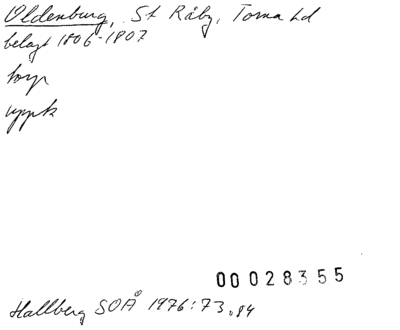 Oldenburg, St Råby, Torna hd
belagt 1806-1807
torp
uppk
00028355
Hallberg SOÅ 1976:73, 84